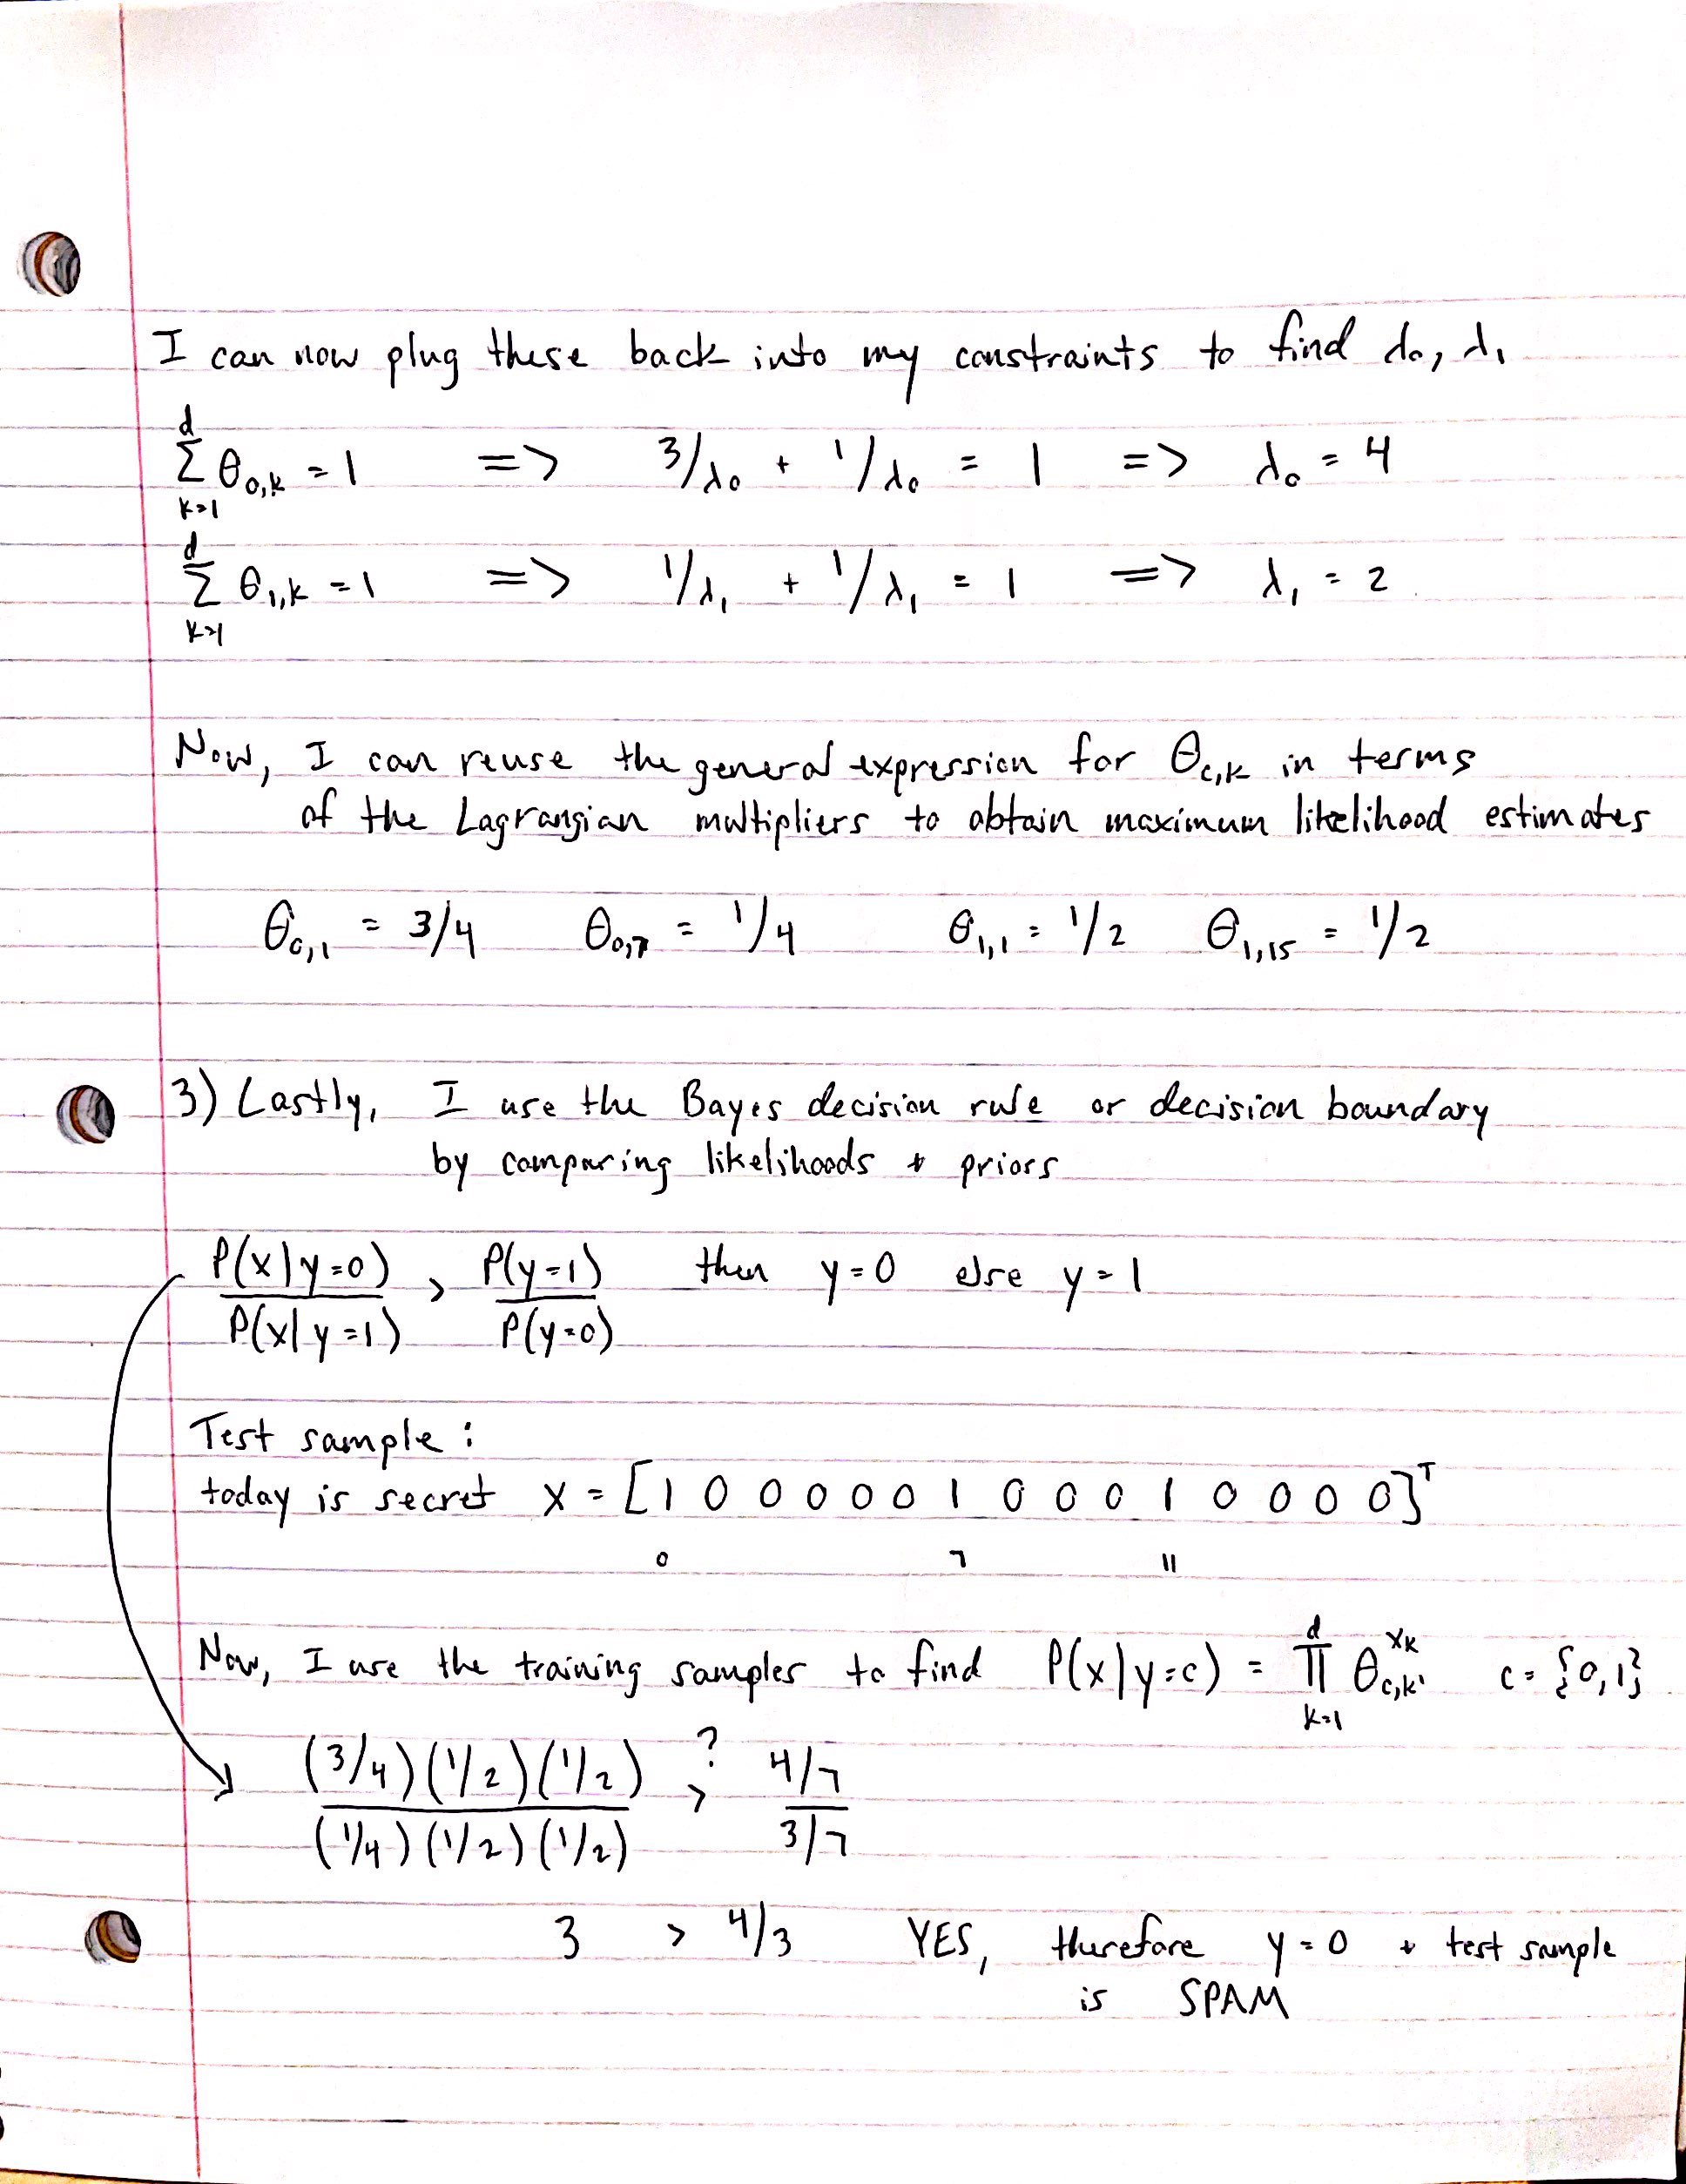 I can now plug these back into my constraints to find λ₀, λ₁
∑_{k=1}^{d} θ_{0,k} = 1 => 3/λ₀ + 1/λ₀ = 1 => λ₀ = 4
∑_{k=1}^{d} θ_{1,k} = 1 => 1/λ₁ + 1/λ₁ = 1 => λ₁ = 2
Now, I can reuse the general expression for θ_{c,k} in terms
of the Lagrangian multipliers to obtain maximum likelihood estimates
θ_{0,1} = 3/4 θ_{0,7} = 1/4 θ_{1,1} = 1/2 θ_{1,15} = 1/2
3) Lastly, I use the Bayes decision rule or decision boundary
by comparing likelihoods + priors
P(x|y=0) / P(x|y=1) > P(y=1) / P(y=0) then y=0 else y=1
Test sample:
today is secret x = [1 0 0 0 0 0 1 0 0 0 1 0 0 0 0]^T
0 7 11
Now, I use the training samples to find P(x|y=c) = ∏_{k=1}^{d} θ_{c,k}^{x_k} c = {0,1}
(3/4)(1/2)(1/2) / (1/4)(1/2)(1/2) >? 4/7 / 3/7
3 > 4/3 YES, therefore y=0 + test sample
is SPAM